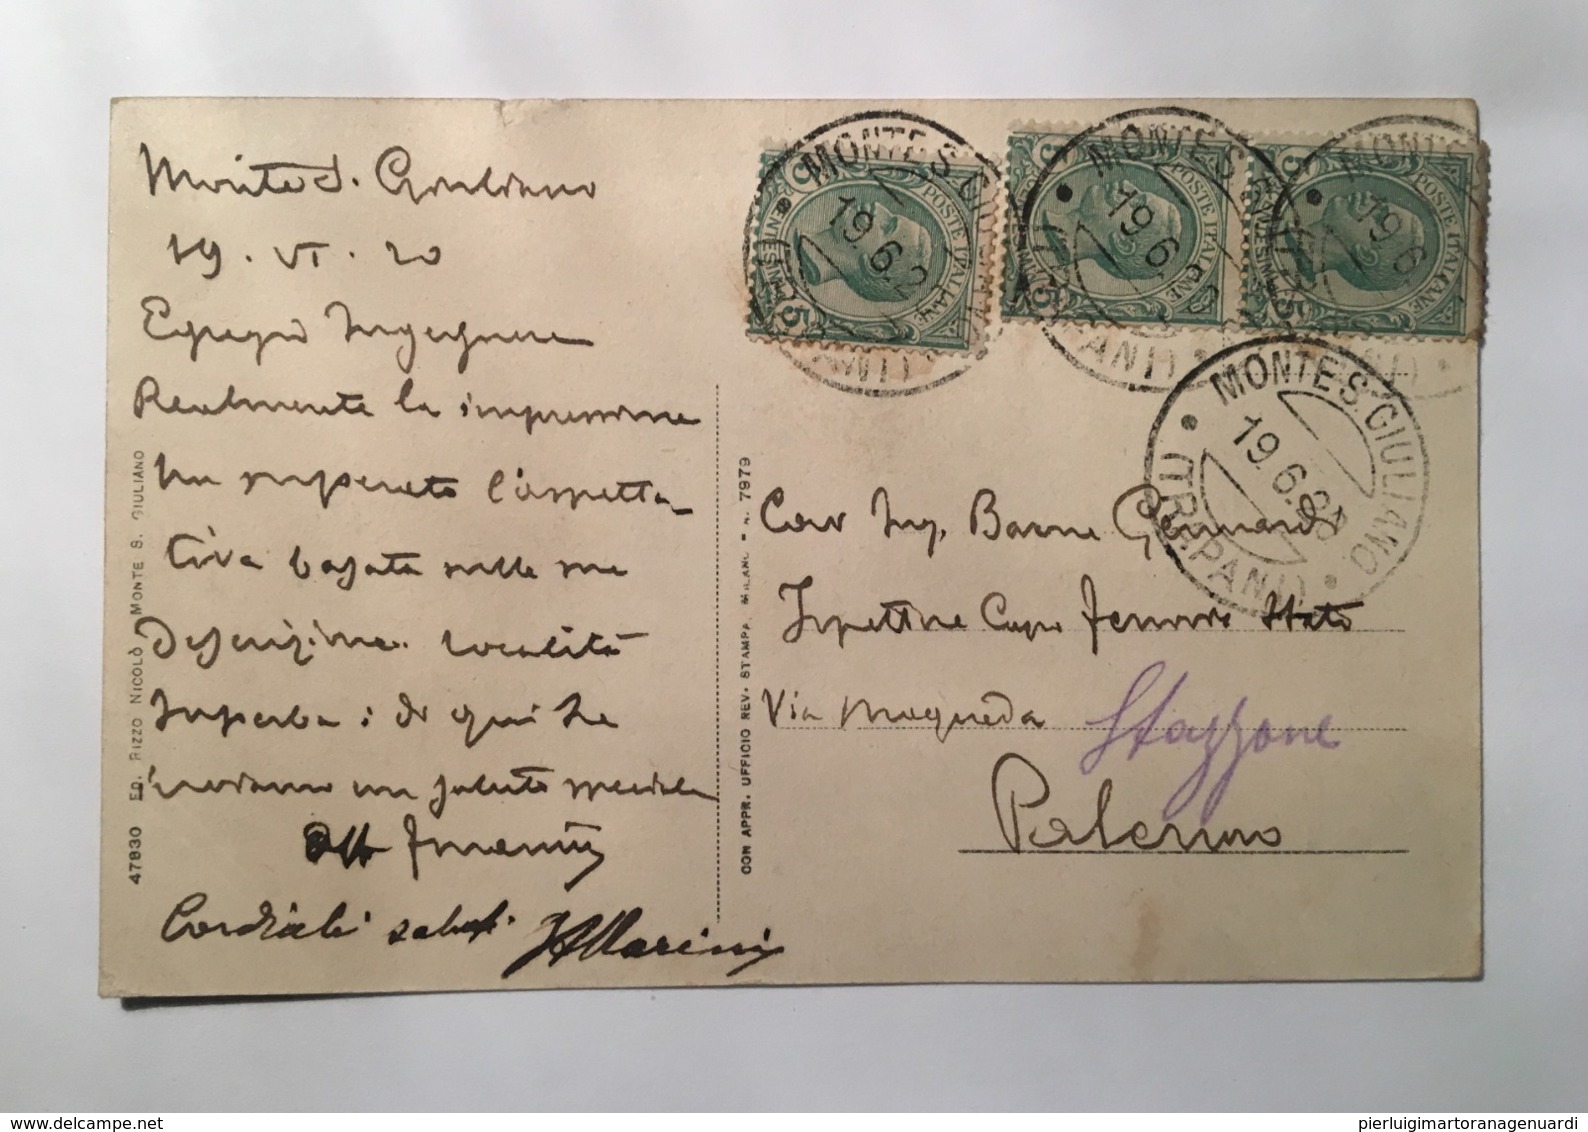 Monte S. Giuliano
19. VI. 20
Egregio Ingegnere
Realmente la impressione
ha superato l'aspetta-
tiva basata sulle sue
descrizione. Località
superba: di qui Le
inviamo un saluto speciale
aff
Cordiali saluti Marini
47830 ED. RIZZO NICOLÒ MONTE S. GIULIANO
CON APPR. UFFICIO REV. STAMPA, MILANO - N. 7979
POSTE ITALIANE
CENTESIMI 5
POSTE ITALIANE
CENTESIMI 5
POSTE ITALIANE
CENTESIMI 5
MONTE S. GIULIANO
19.6.2
(TRAPANI)
MONTE S. GIULIANO
19.6
(TRAPANI)
MONTE S
19.6
MONTE S. GIULIANO
19.6.
(TRAPANI)
Cav Ing. Barone Genuardi
Ispettore Capo Ferrovie Stato
Via Maqueda Stazzone
Palermo
delcampe.net
pierluigimartoranagenuardi